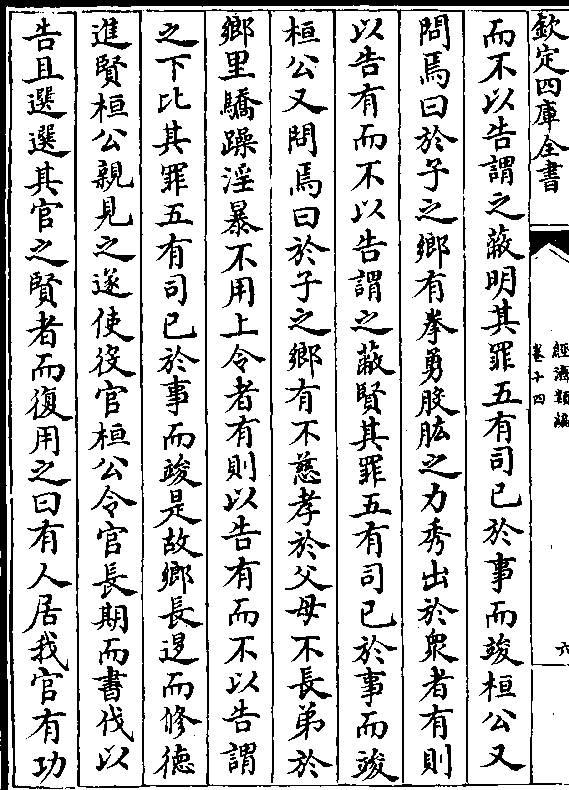 欽定四庫全書
經濟類編
卷十四
六
而不以告謂之蔽明其罪五有司已於事而竣桓公又
問焉曰於子之鄉有拳勇股肱之力秀出於衆者有則
以告有而不以告謂之蔽賢其罪五有司已於事而竣
桓公又問焉曰於子之鄉有不慈孝於父母不長弟於
鄉里驕躁淫暴不用上令者有則以告有而不以告謂
之下比其罪五有司已於事而竣是故鄉長退而修德
進賢桓公親見之遂使役官桓公令官長期而書伐以
告且選選其官之賢者而復用之曰有人居我官有功